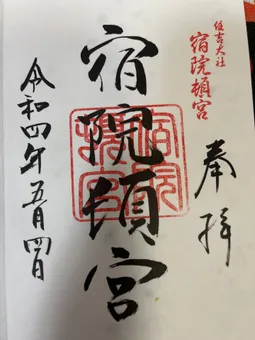 住吉大社
宿院頓宮
奉拝
宿院頓宮
令和四年五月四日